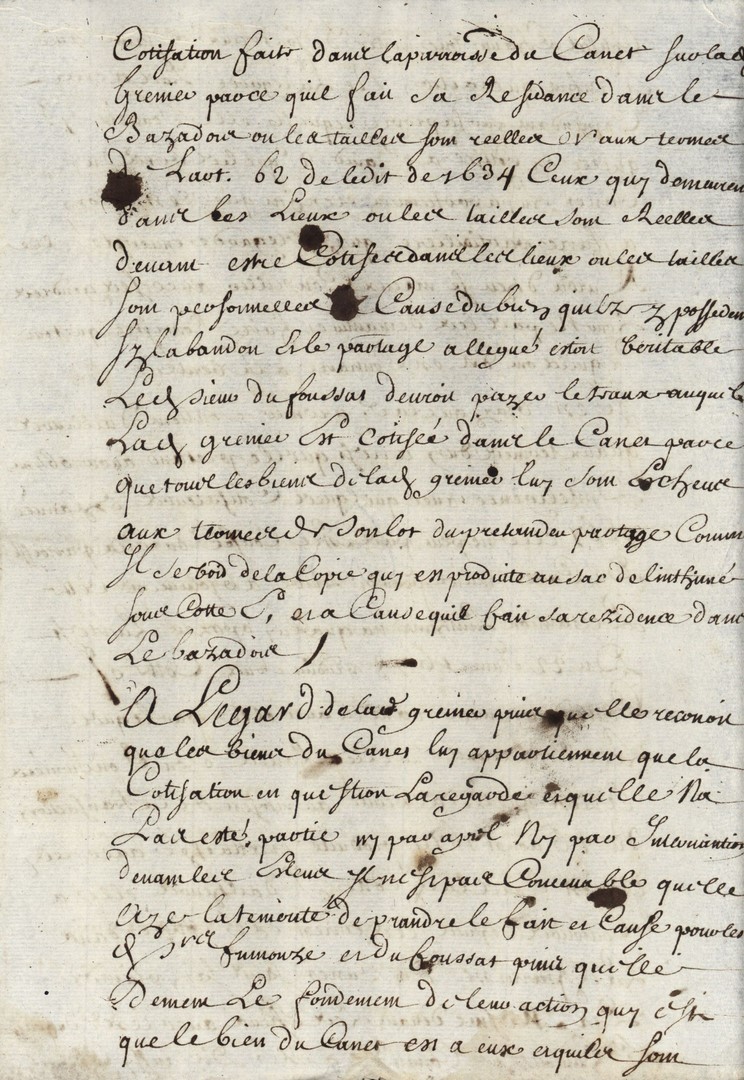 Cotisation faite dans la parroisse du Canet sur lad
Grenier parce quil fait sa Residance dans le
Bazadois ou les tailles sont reelles Or aux termes
de Lart. 62 de ledit de 1634 Ceux quy demeurent
dans les Lieux ou les tailles sont Reelles
devant estre Cotises dans les lieux ou les tailles
sont personnelles a Cause du bien quilz y possedent
Sy labandon et le partage allegué estoit veritable
Led sieur du foussat devroit payer le taux auquel
Lad grenier Est Cotisée dans le Canet parce
que tous les biens de lad grenier luy sont Echeus
aux termes de son lot du pretandeu partage Comme
Il se void de la Copie quy en produite au sac de linthimé
sous Cotte E, et a Cause quil fait sa rezidence dans
Le bazadois /
A Legard de lad grenier puis quelle reconoit
que les biens du Canet luy appartiennent que la
Cotisation en question La regarde et quelle Na
Pas esté partie ny par apel Ny par Intervantion
devant les Esleus Il nest pas Concevable quelle
aye la temerité de prandre le fait et Cause pour les
d srs fumouze et du foussat puis quelle
dement Le fondement de leur action quy est
que le bien du Canet est a eux et quils sont